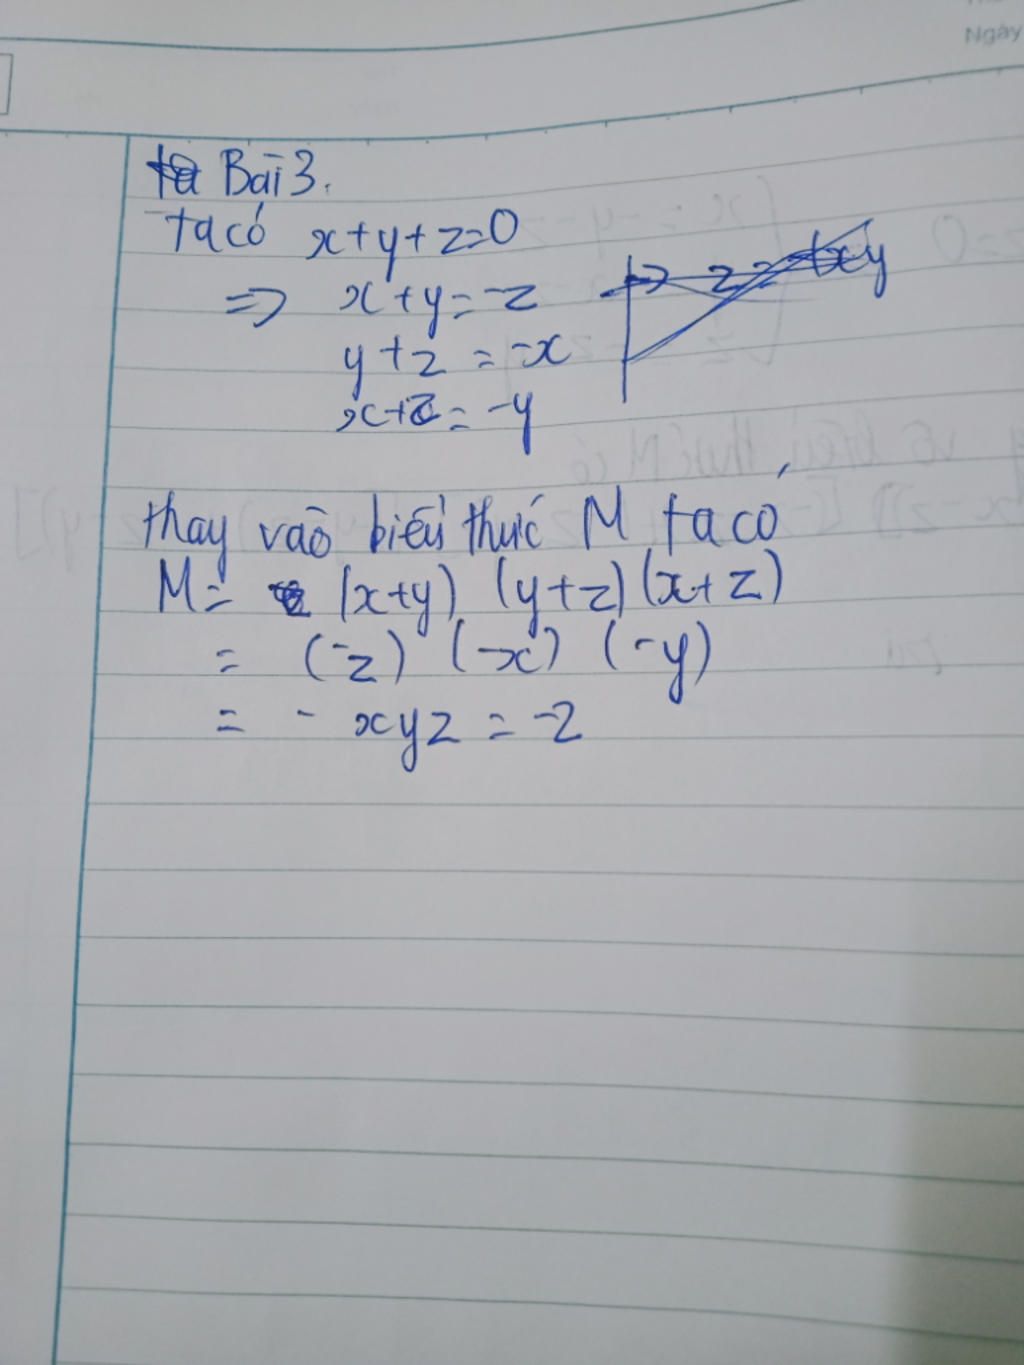 Ngày
Bài 3.
ta có x+y+z=0
=> x+y=-z
y+z=-x
x+z=-y
thay vào biểu thức M ta có
M= (x+y) (y+z) (x+z)
= (-z) (-x) (-y)
= - xyz = -2